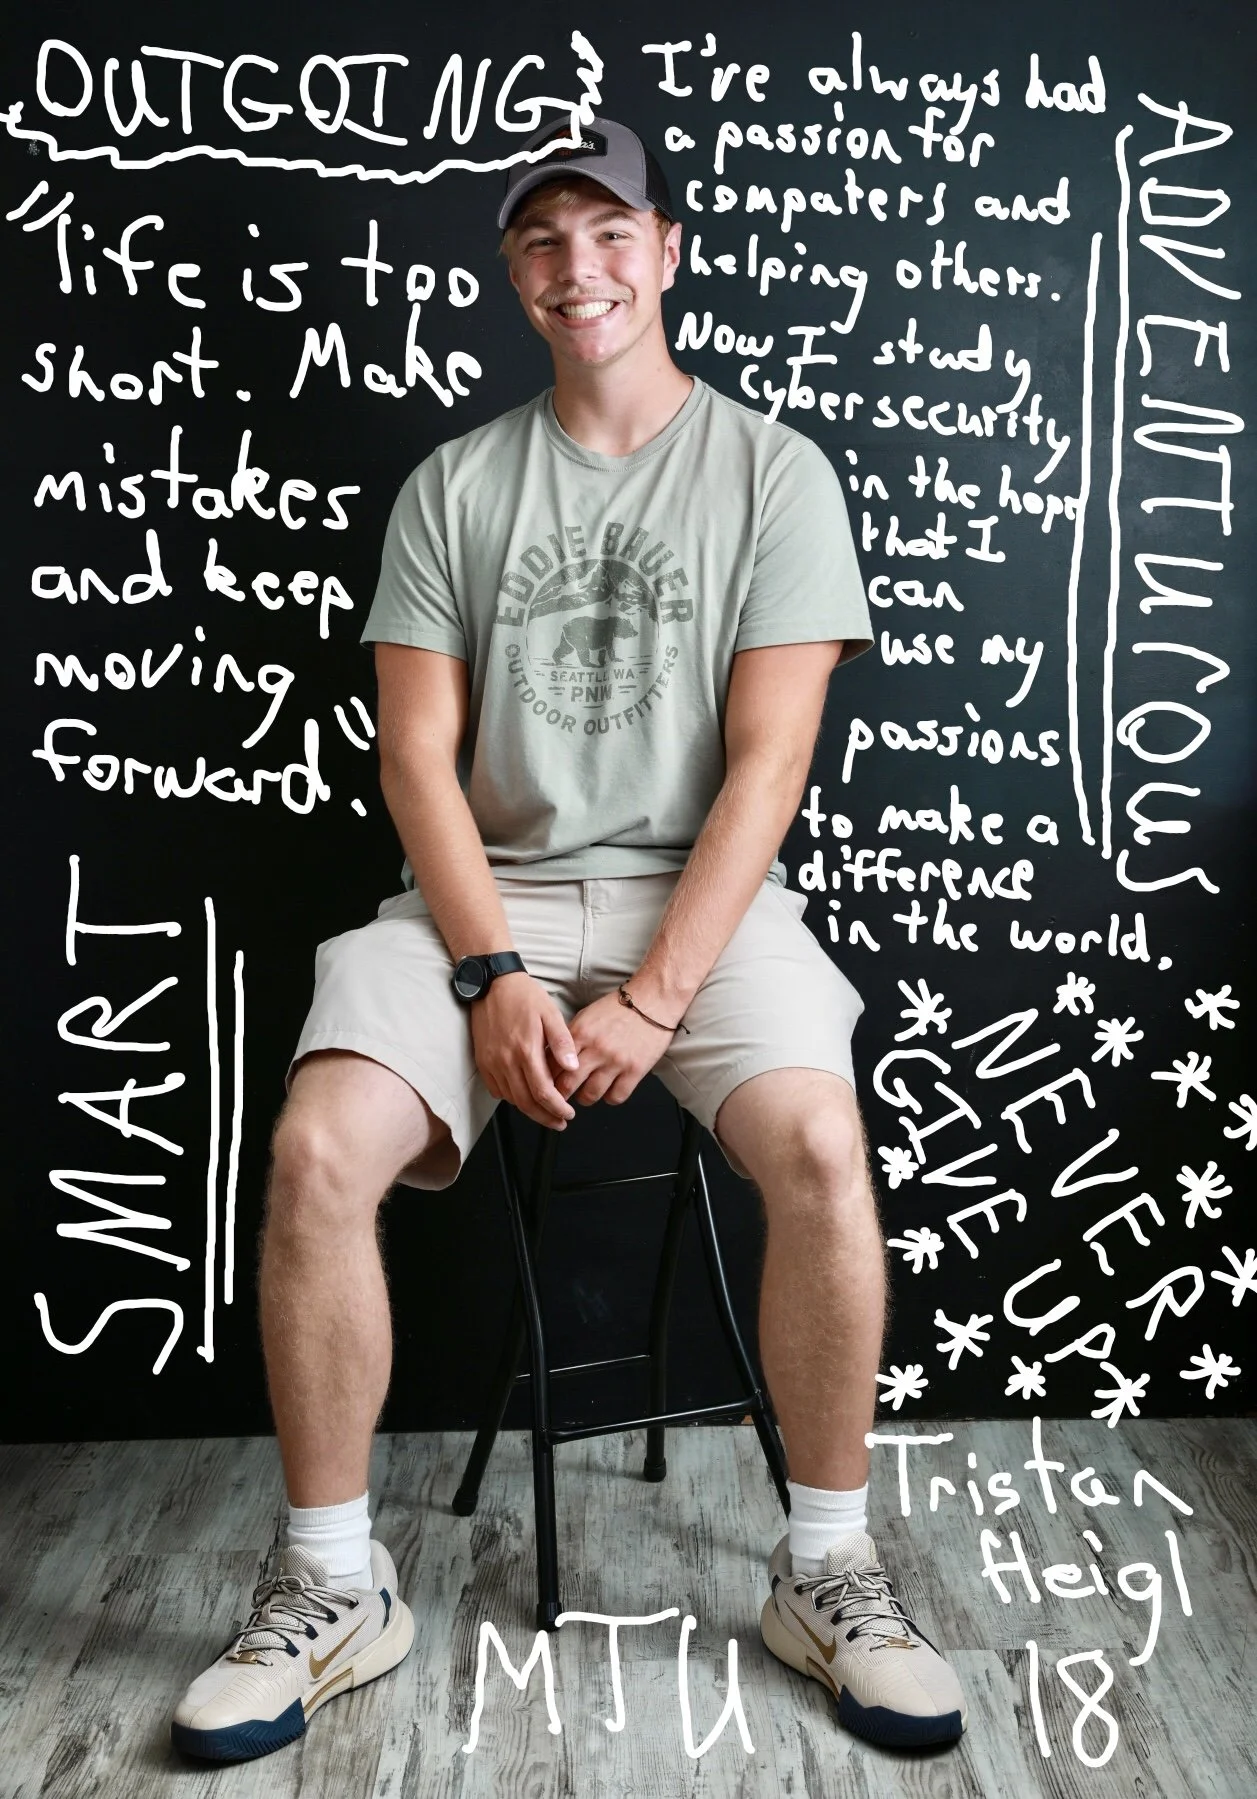 OUTGOING
"life is too
short. Make
mistakes
and keep
moving
forward."
SMART
I've always had
a passion for
computers and
helping others.
Now I study
Cybersecurity
in the hope
that I
can
use my
passions
to make a
difference
in the world.
ADVENTUROUS
NEVER
GIVE UP
Tristan
Heigl
18
MTU
EDDIE BAUER
SEATTLE, WA
PNW
OUTDOOR OUTFITTERS